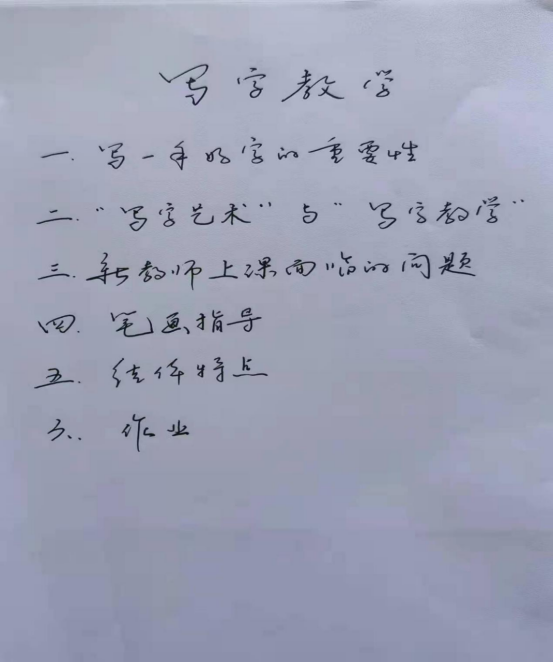 写字教学
一.写一手好字的重要性
二.“写字艺术”与“写字教学”
三.新教师上课面临的问题
四.笔画指导
五.结体特点
六.作业